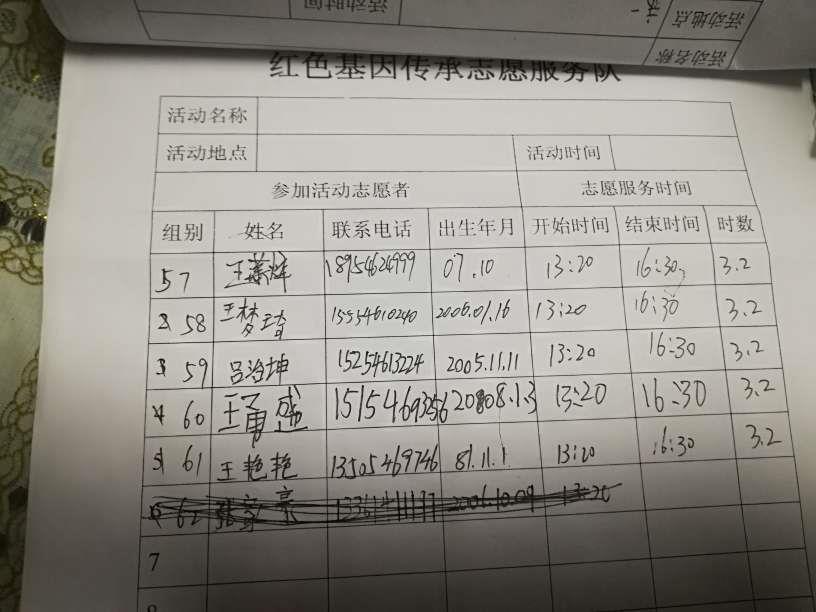 活动时间
活动地点
活动名称
红色基因传承志愿服务队
活动名称
活动地点 活动时间
参加活动志愿者 志愿服务时间
组别 姓名 联系电话 出生年月 开始时间 结束时间 时数
57 18954624999 07.10 13:20 16:30 3.2
2 58 王梦琦 15554610240 2006.01.16 13:20 16:30 3.2
3 59 吕治坤 15254613224 2005.11.11 13:20 16:30 3.2
4 60 王勇盛 15154693256 13:20 16:30 3.2
5 61 王艳艳 13505469746 81.11.1 13:20 16:30 3.2
6 62 2006.10.09 13:20
7